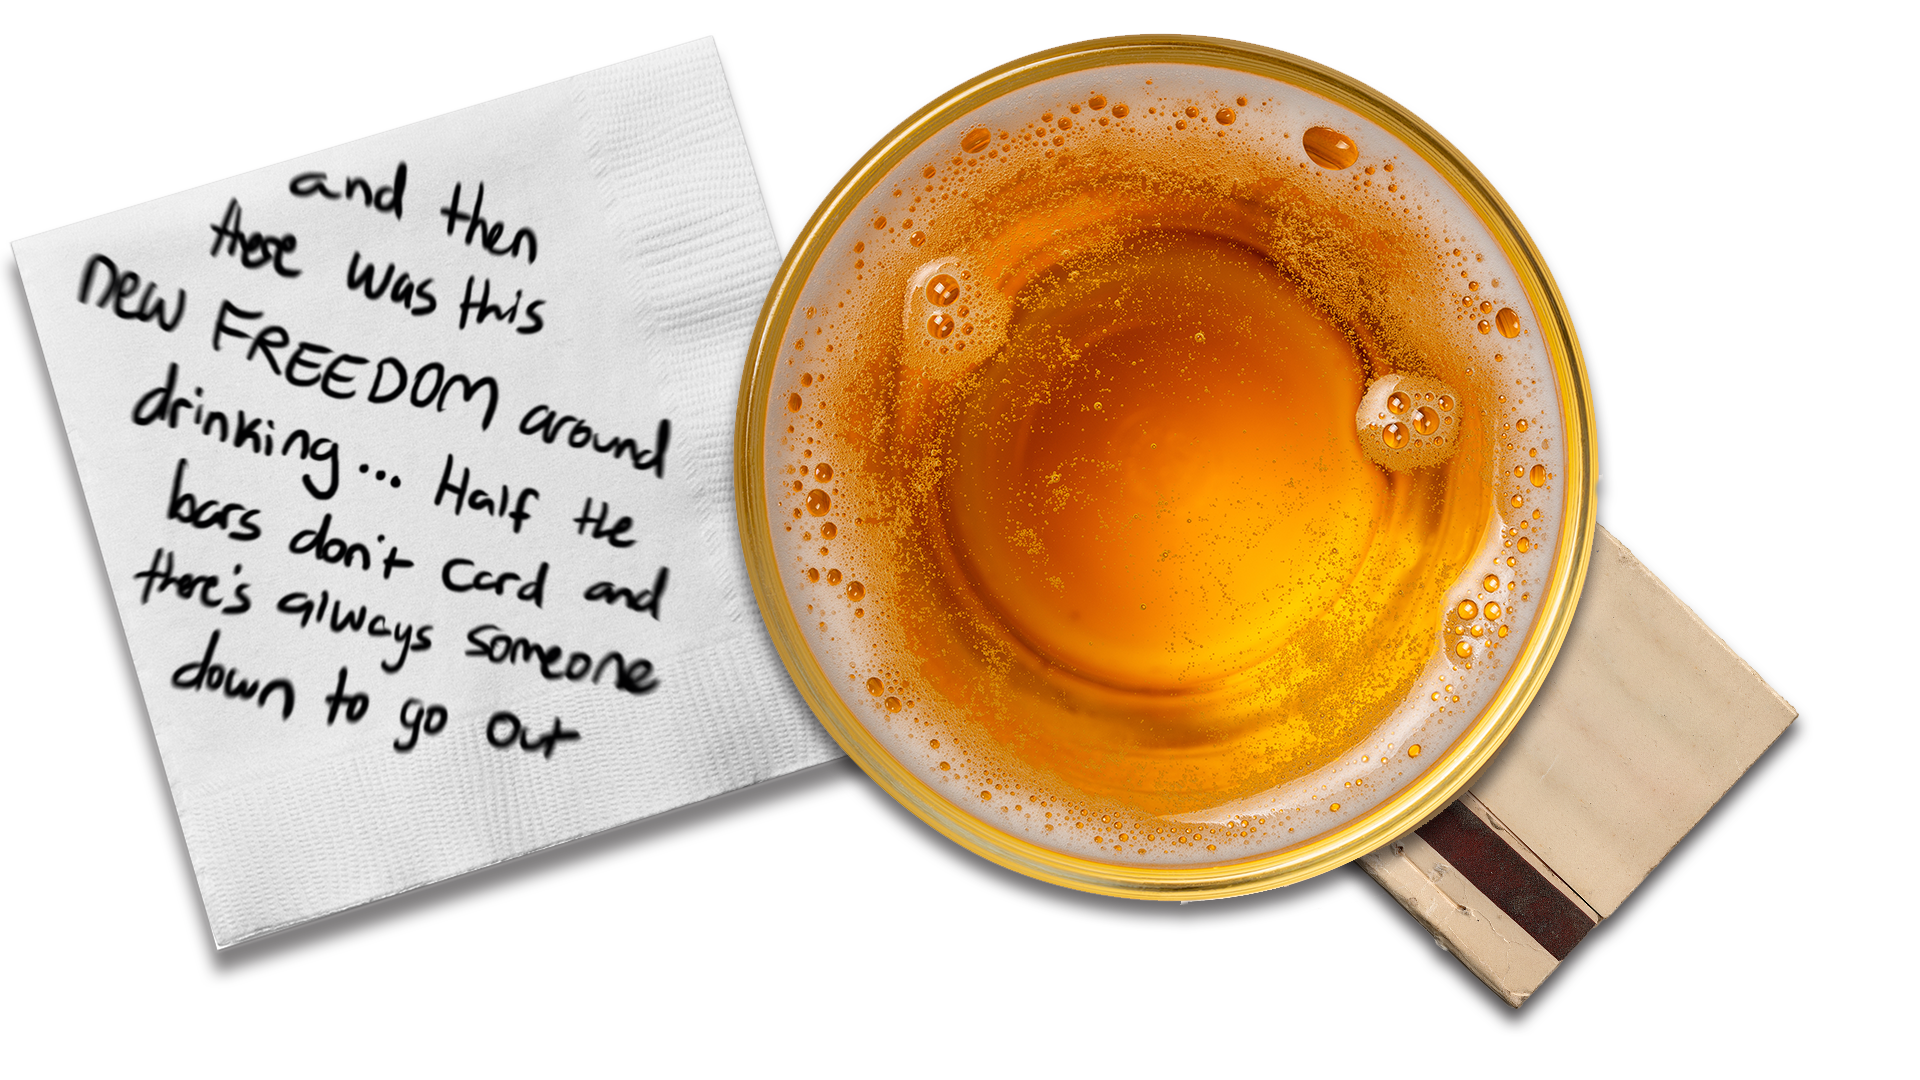 and then
there was this
new FREEDOM around
drinking... Half the
bars don't card and
there's always someone
down to go out